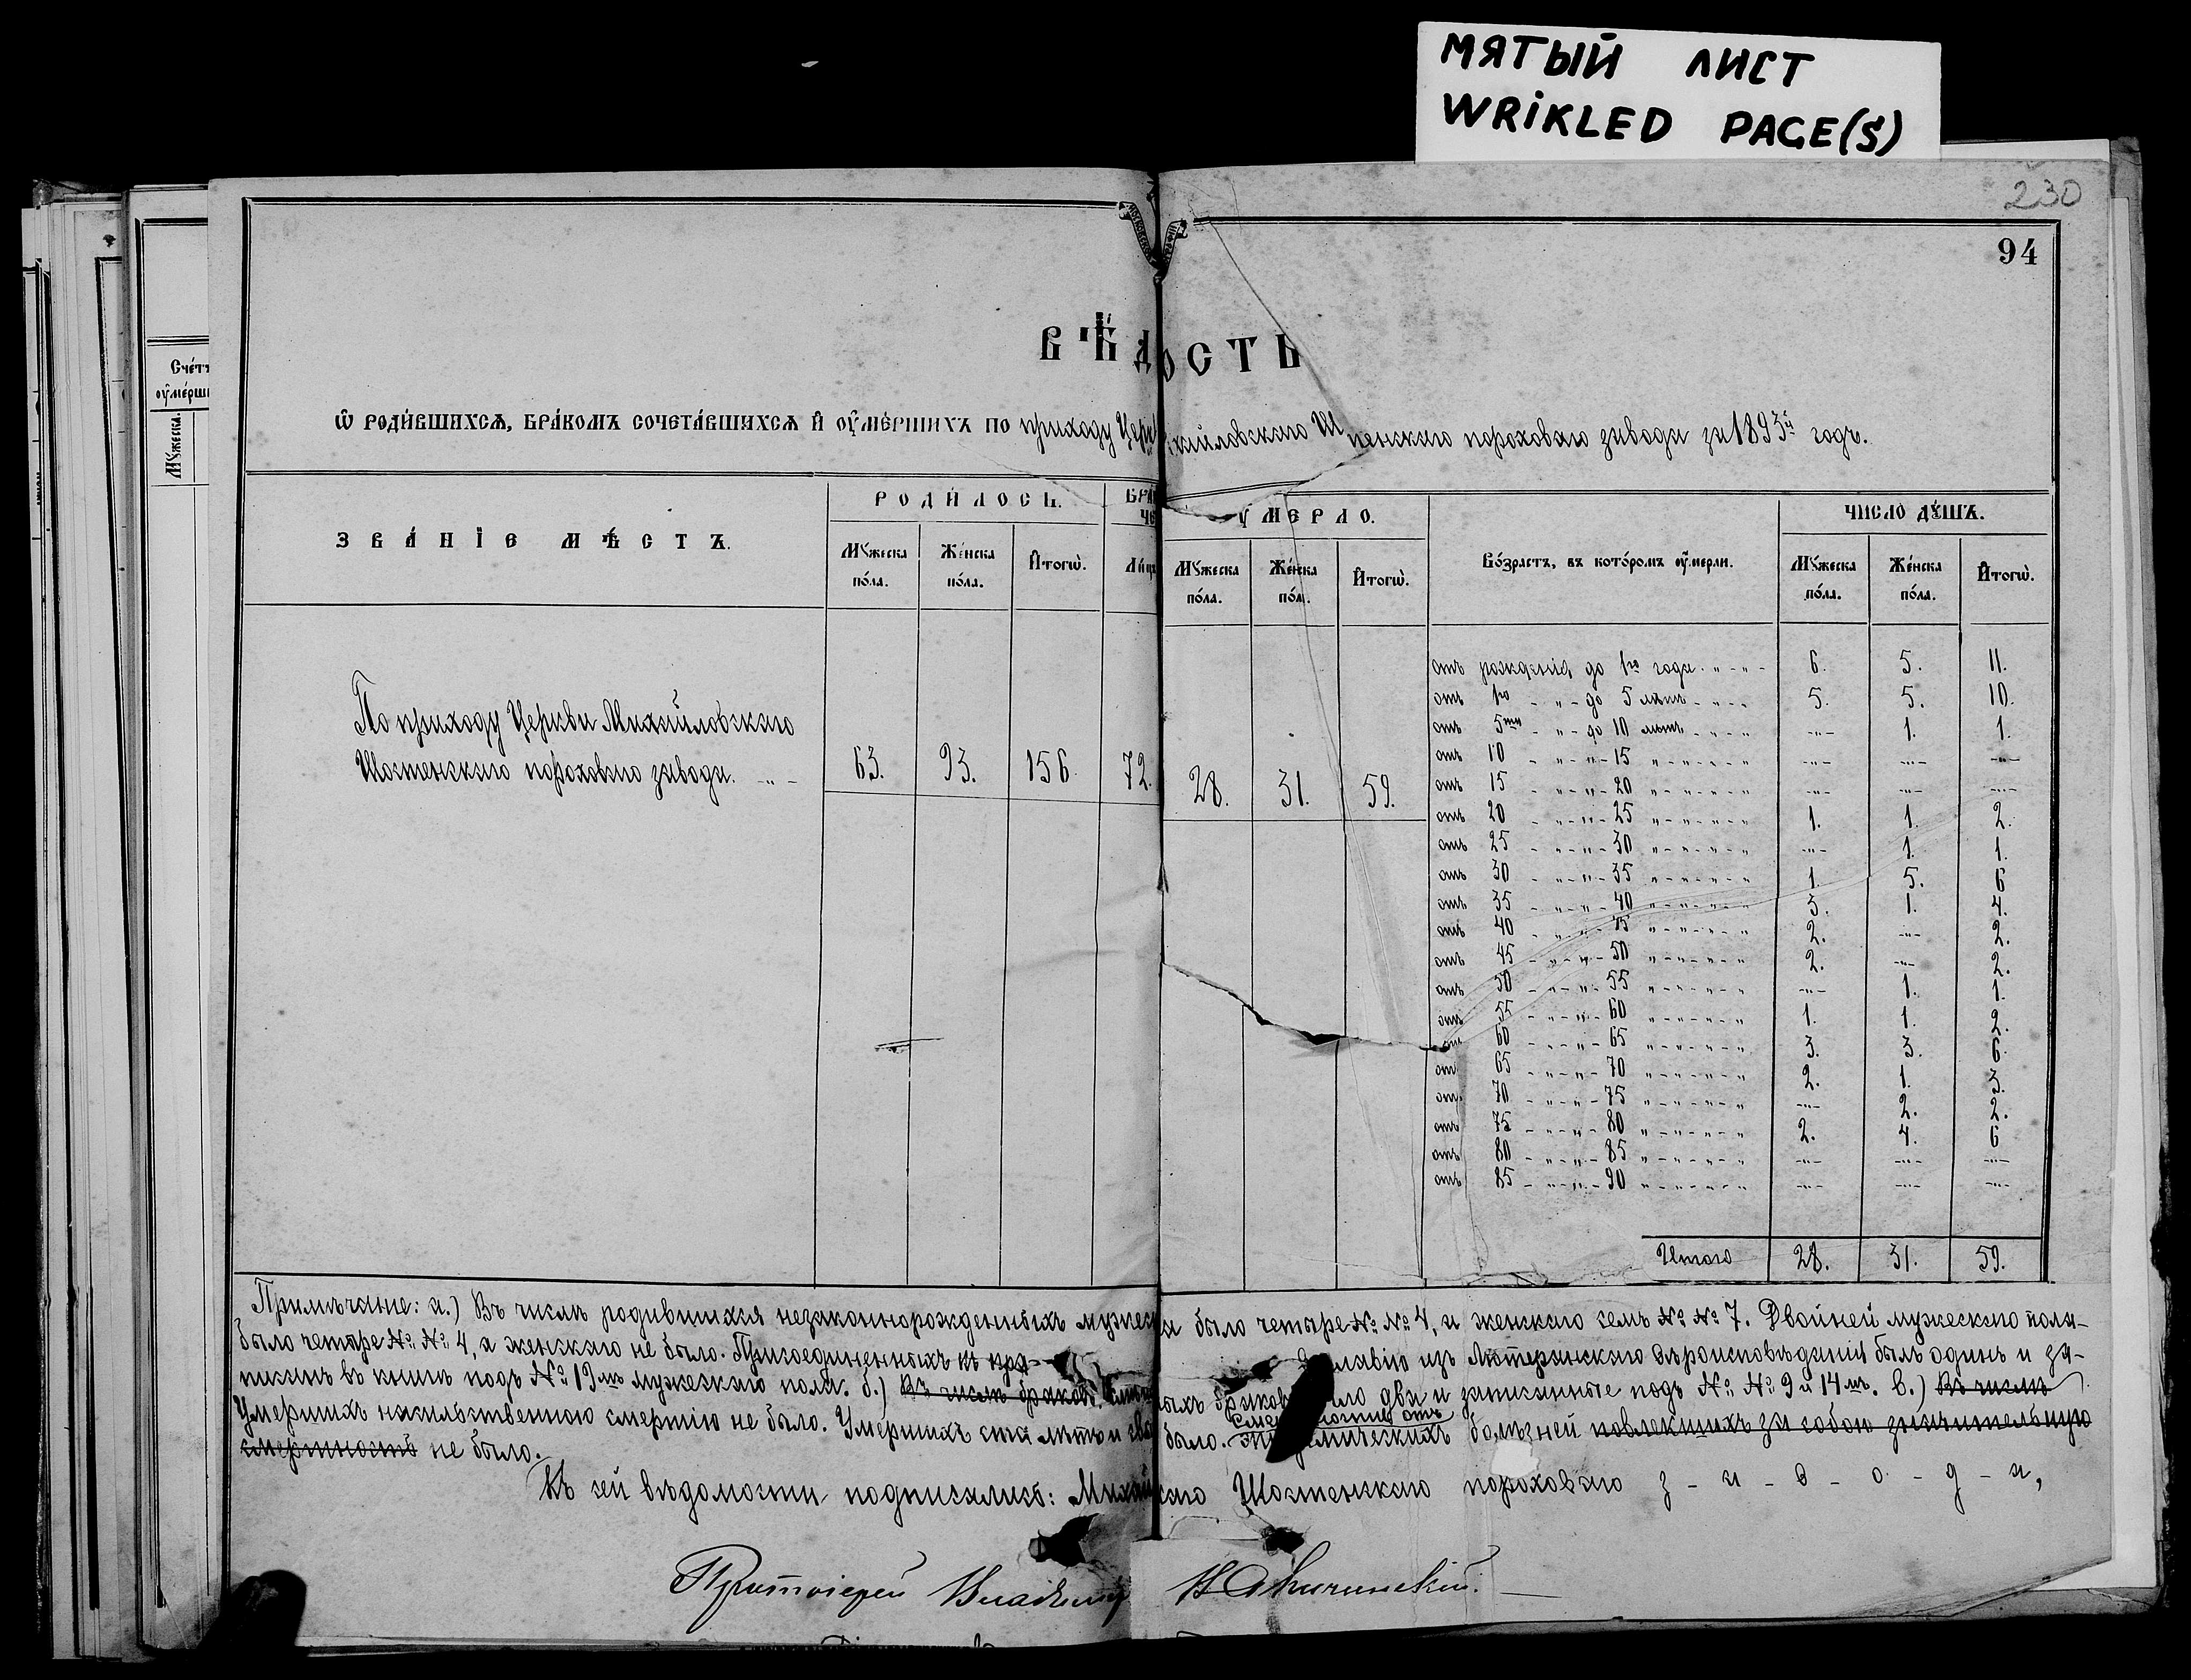 МЯТЫЙ ЛИСТ
WRiKLED PAGE(S)
230
94
ВѢД ОСТЬ
Ѿ РОДИ́ВШИХСѦ, БРА́КОМЪ СОЧЕТА́ВШИХСѦ И҆ ОУ҆МЕ́РШИХЪ ПО приходу Церк хайловскаго Ш тенскаго пороховаго завода за 1893й годъ.
Сче́тъ
оу҆ме́рши
Мꙋ́жеска.
ЗВА́НІЕ МѢСТЪ.
РОДИ́ЛОСЬ.
БРА
ЧЕ
УМЕРЛО.
Во́зрастъ, въ кото́ромъ оу҆́мерли.
ЧИСЛО́ ДꙊШЪ.
Мꙋ́жеска по́ла.
Же́нска по́ла.
И҆тогѡ̀.
Мꙋ́жеска по́ла.
Же́нска по́л.
И҆тогѡ̀.
Мꙋ́жеска по́ла.
Же́нска по́ла.
И҆тогѡ̀.
По приходу Церкви Михайловскаго
Шостенскаго пороховаго завода. 63. 93. 156. 72. 28. 31. 59.
отъ рожденія до 1го года 6. 5. 11.
отъ 1го до 5 лѣтъ 5. 5. 10.
отъ 5ти до 10 лѣтъ -„- 1. 1.
отъ 10 - „ - 15 -„- -„- -„-
отъ 15 - „ - 20 -„- -„- -„-
отъ 20 - „ - 25 1. 1. 2.
отъ 25 - „ - 30 -„- 1. 1.
отъ 30 - „ - 35 1. 5. 6
отъ 35 - „ - 40 3. 1. 4.
отъ 40 - „ - 45 2. -„- 2.
отъ 45 - „ - 50 2. -„- 2.
отъ 50 - „ - 55 -„- 1. 1.
отъ 55 - „ - 60 1. 1. 2.
отъ 60 - „ - 65 3. 3. 6.
отъ 65 - „ - 70 2. 1. 3.
отъ 70 - „ - 75 -„- 2. 2.
отъ 75 - „ - 80 2. 4. 6
отъ 80 - „ - 85 -„- -„- -„-
отъ 85 - „ - 90 -„- -„- -„-
Итого 28. 31. 59.
Примѣчаніе: а.) Въ числѣ родившихся незаконнорожденныхъ мужеск а было четыре №№ 4, и женскаго семь №№ 7. Двойней мужескаго пола-
было четыре №№ 4, а женскаго не было. Присоединенныхъ къ пра- славію изъ Лютеранскаго вѣроисповѣданія былъ одинъ и за-
писанъ въ книгѣ подъ № 19мъ мужескаго пола. б.) Въ числѣ браковъ ыхъ браковъ было два и записанные подъ №№ 9 и 14мъ. в.) Въ числѣ
Умершихъ насильственною смертію не было. Умершихъ ста лѣтъ и свы было. эпидемическихъ болѣзней повлекшихъ за собою значительную
смертность не было.
Къ сей вѣдомости подписались: Михай скаго Шостенскаго пороховаго з - а - в - о - д - а,
Протоіерей Владимір